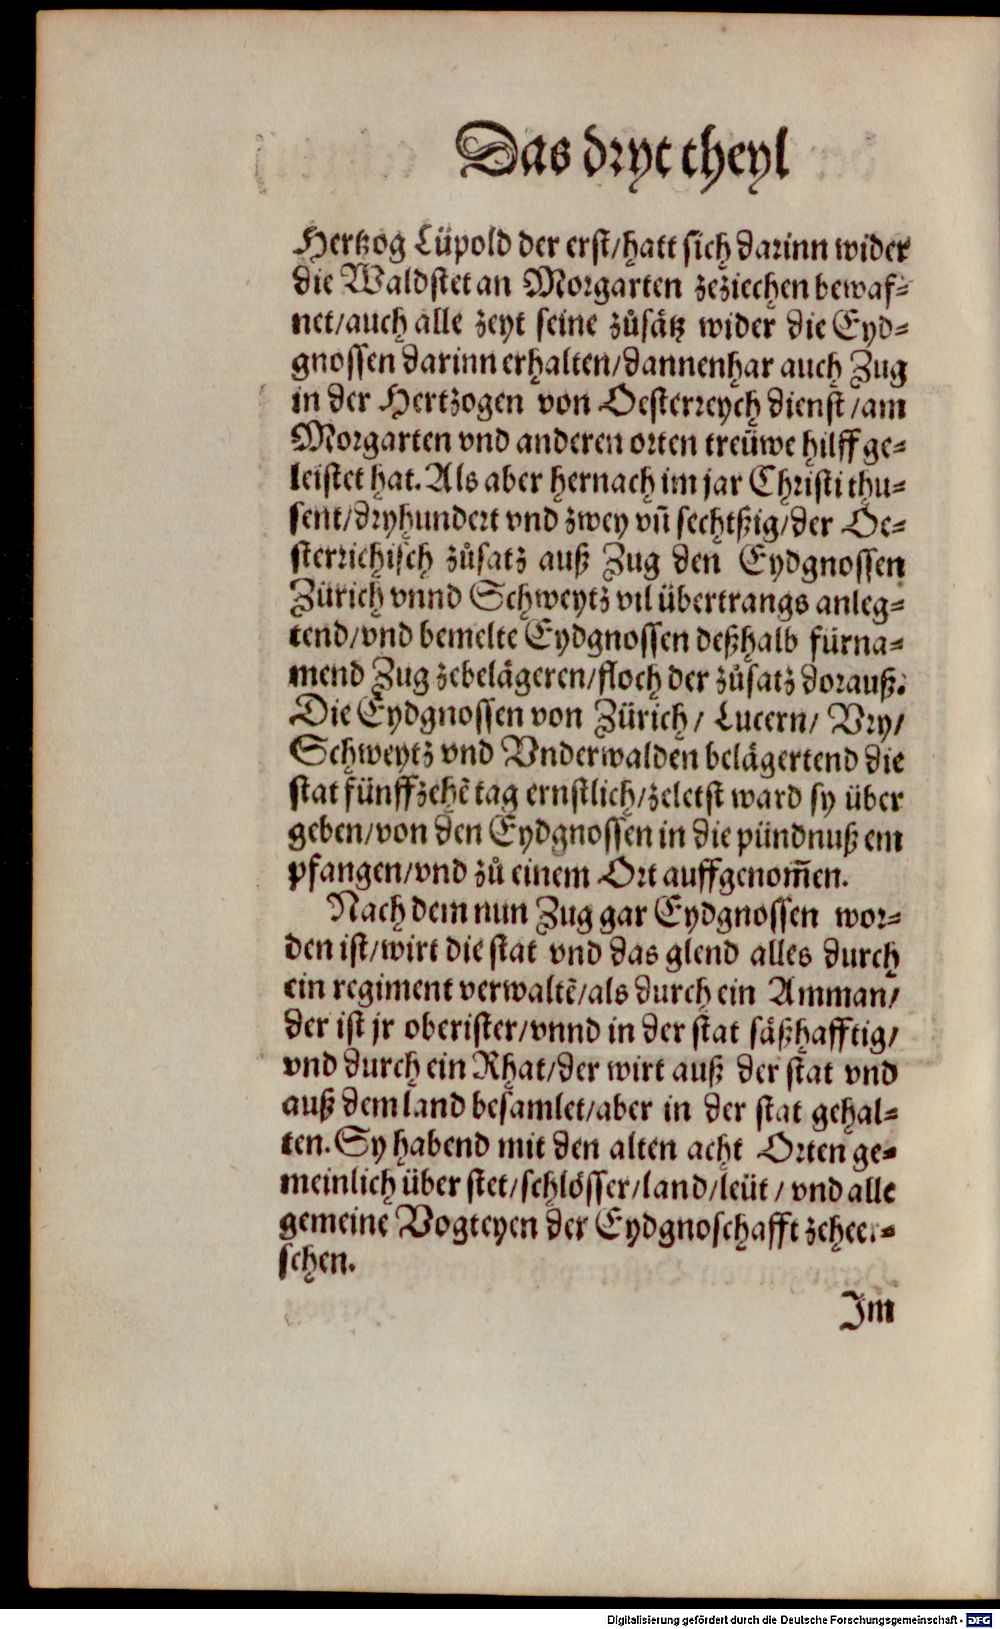 Das dryt theyl
Hertzog Lüpold der erst/hatt sich darinn wider
die Waldstet an Morgarten zeziechen bewaf⸗
net/auch alle zeyt seine zůsaͤtz wider die Eyd⸗
gnossen darinn erhalten/dannenhar auch Zug
in der Hertzogen von Oesterreych dienst/am
Morgarten vnd anderen orten treüwe hilff ge⸗
leistet hat. Als aber hernach im jar Christi thu⸗
sent/dryhundert vnd zwey vñ sechtßig/der Oe⸗
sterrichisch zůsatz auß Zug den Eydgnossen
Zürich vnnd Schweytz vil übertrangs anleg⸗
tend/vnd bemelte Eydgnossen deßhalb fürna⸗
mend Zug zebelaͤgeren/floch der zůsatz dorauß.
Die Eydgnossen von Zürich/ Lucern/ Vry/
Schweytz vnd Vnderwalden belaͤgertend die
stat fünffzehẽ tag ernstlich/zeletst ward sy über
geben/von den Eydgnossen in die pündnuß em
pfangen/vnd zů einem Ort auffgenom̃en.
Nach dem nun Zug gar Eydgnossen wor⸗
den ist/wirt die stat vnd das glend alles durch
ein regiment verwaltẽ/als durch ein Amman/
der ist jr oberister/vnnd in der stat saͤßhafftig/
vnd durch ein Rhat/der wirt auß der stat vnd
auß dem land besamlet/aber in der stat gehal⸗
ten. Sy habend mit den alten acht Orten ge⸗
meinlich über stet/schloͤsser/land/leüt/ vnd alle
gemeine Vogteyen der Eydgnoschafft zeheer⸗
schen.
Im
Digitalisierung gefördert durch die Deutsche Forschungsgemeinschaft - DFG